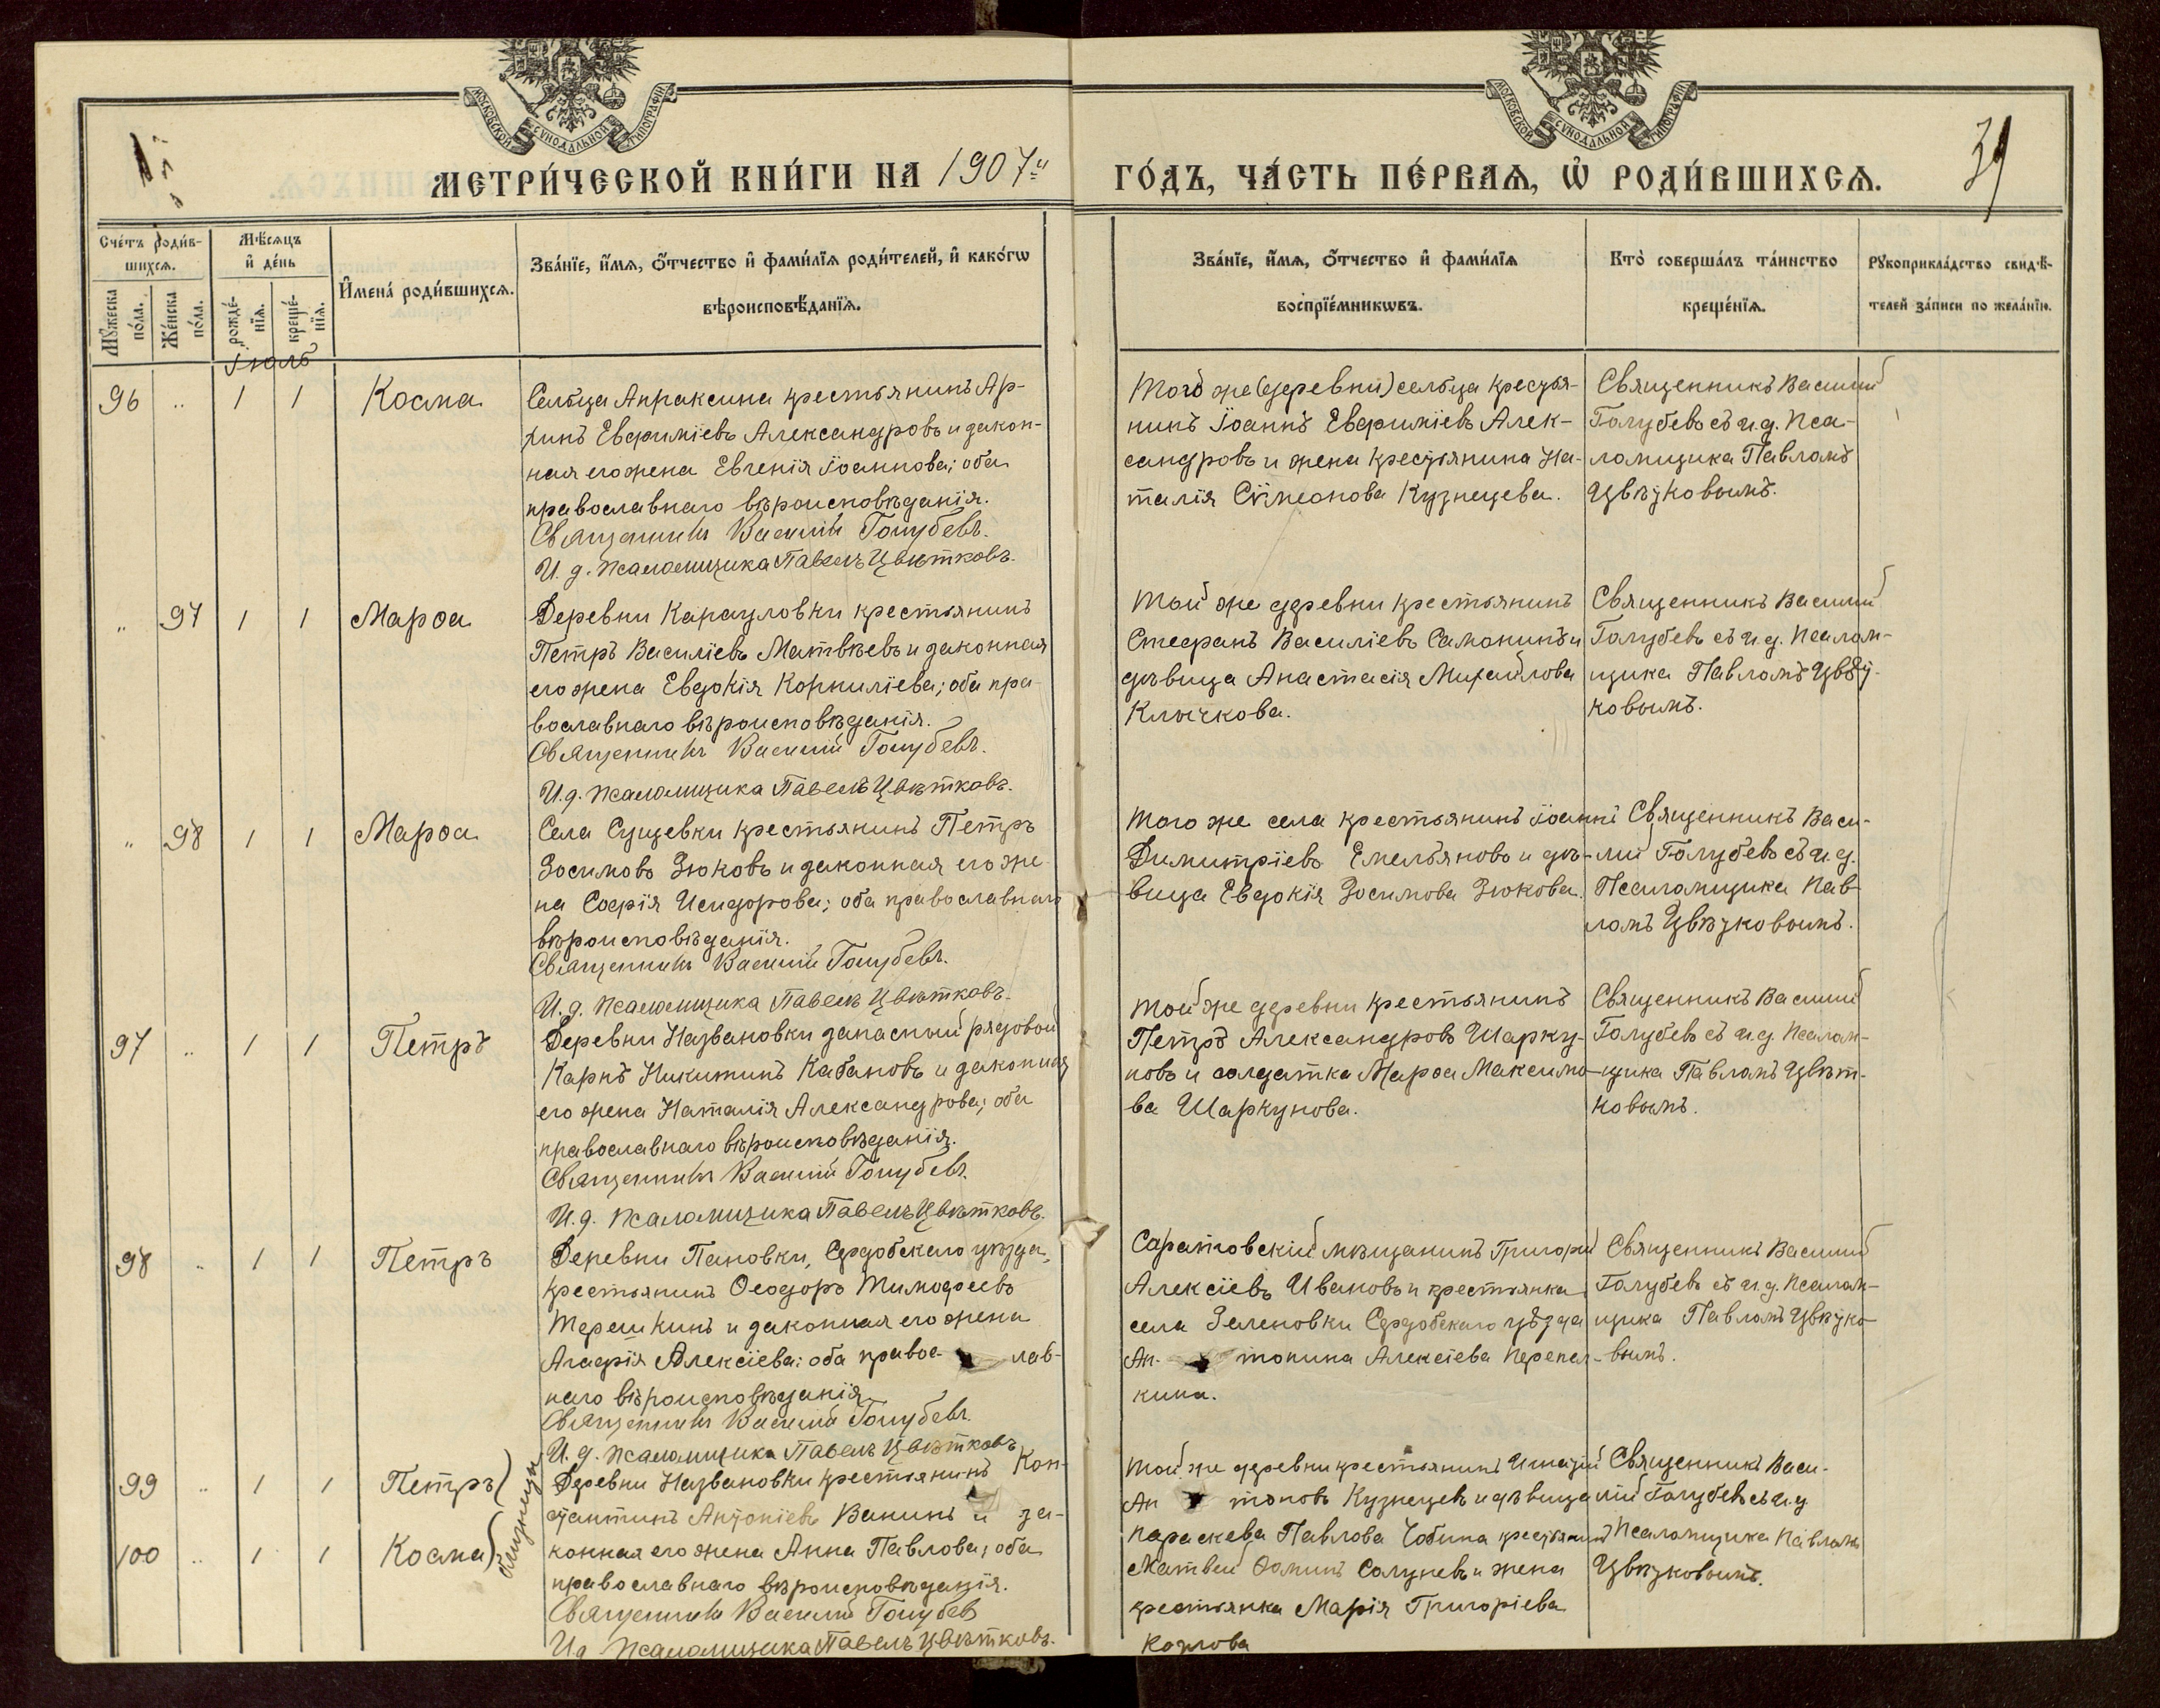 МОСКОВСКОЙ СѴНОДАЛЬНОЙ ТИПОГРАФІИ
МОСКОВСКОЙ СѴНОДАЛЬНОЙ ТИПОГРАФІИ
МЕТРИ́ЧЕСКОЙ КНИ́ГИ НА 1907й
ГО́ДЪ, ЧА́СТЬ ПЕ́РВАѦ, Ѡ҆ РОДИ́ВШИХСѦ.
39
Сче́тъ роди́в-
шихсѧ.
Мѣ́сѧцъ
и҆ де́нь
И҆мена́ роди́вшихсѧ.
Зва́нїе, и҆́мѧ, ѻ҆́тчество и҆ фами́лїѧ роди́телей, и҆ како́гѡ
вѣроисповѣ́данїѧ.
Мꙋ́жеска по́ла.
Же́нска по́ла.
рожде́-нїѧ.
креще́-нїѧ.
Зва́нїе, и҆́мѧ, ѻ҆́тчество и҆ фами́лїѧ
воспрїе́мникѡвъ.
Кто̀ соверша́лъ та́инство
креще́нїѧ.
Рꙋкоприкла́дство свидѣ́-
телей за́писи по жела́нїю.
Іюль
96 „ 1 1 Косма
Сельца Апраксина крестьянинъ Ар-
хипъ Евѳиміевъ Александровъ и закон-
ная его жена Евгенія Іоаннова; оба
православнаго вѣроисповѣданія.
Священникъ Василій Голубевъ.
И. д. псаломщика Павелъ Цвѣтковъ.
Того же (деревни) сельца кресть-
нинъ Іоаннъ Евѳиміевъ Алек-
сандровъ и жена крестьянина На-
талія Сѵмеонова Кузнецева.
Священникъ Василій
Голубевъ съ и. д. Пса-
ломщика Павломъ
Цвѣтковымъ.
„ 97 1 1 Марѳа
Деревни Карауловки крестьянинъ
Петръ Василіевъ Матвѣевъ и законная
его жена Евдокія Корниліева; оба пра-
вославнаго вѣроисповѣданія.
Священникъ Василій Голубевъ.
И. д. псаломщика Павелъ Цвѣтковъ.
Той же деревни крестьянинъ
Стефанъ Василіевъ Самонинъ и
дѣвица Анастасія Михайлова
Клычкова.
Священникъ Василій
Голубевъ съ и. д. Псалом-
щика Павломъ Цвѣт-
ковымъ.
„ 98 1 1 Марѳа
Села Сущевки крестьянинъ Петръ
Зосимовъ Зюковъ и законная его же-
на Софія Исидорова; оба православнаго
вѣроисповѣданія.
Священникъ Василій Голубевъ.
И. д. псаломщика Павелъ Цвѣтковъ.
Того же села крестьянинъ Іоаннъ
Димитріевъ Емельяновъ и дѣ-
вица Евдокія Зосимова Зюкова.
Священникъ Васи-
лій Голубевъ съ и. д.
Псаломщика Пав-
ломъ Цвѣтковымъ.
97 „ 1 1 Петръ
Деревни Названовки запасный рядовой
Карпъ Никитинъ Кабановъ и законная
его жена Наталія Александрова; оба
православнаго вѣроисповѣданія.
Священникъ Василій Голубевъ.
И. д. псаломщика Павелъ Цвѣтковъ.
Той же деревни крестьянинъ
Петръ Александровъ Шарку-
новъ и солдатка Марѳа Максимо-
ва Шаркунова.
Священникъ Василій
Голубевъ съ и. д. Псалом-
щика Павломъ Цвѣт-
ковымъ.
98 „ 1 1 Петръ
Деревни Пановки, Сердобскаго уѣзда,
крестьянинъ Ѳеодоръ Тимоѳеевъ
Терешкинъ и законная его жена
Агафія Алексіева; оба правос- лав-
наго вѣроисповѣданія
Священникъ Василій Голубевъ.
И. д. псаломщика Павелъ Цвѣтковъ
Саратовскій мѣщанинъ Григорій
Алексіевъ Ивановъ и крестьянка
села Зеленовки Сердобскаго уѣзда
Ан- тонина Алексіева Перепел-
кина.
Священникъ Василій
Голубевъ съ и. д. Псалом-
щика Павломъ Цвѣтко-
вымъ.
99 „ 1 1 Петръ
100 „ 1 1 Косма
близнецы
Деревни Названовки крестьянинъ Кон-
стантинъ Антоніевъ Ванинъ и за-
конная его жена Анна Павлова; оба
православнаго вѣроисповѣданія.
Священникъ Василій Голубевъ
И. д. псаломщика Павелъ Цвѣтковъ.
Той же деревни крестьянинъ Игнатій
Ан тоновъ Кузнецевъ и дѣвица
Параскева Павлова крестьянинъ
Матвей Ѳоминъ и жена
крестьянка Марія Григоріева
Козлова
Священникъ Васи-
лій Голубевъ съ и. д.
Псаломщика Павломъ
Цвѣтковымъ.